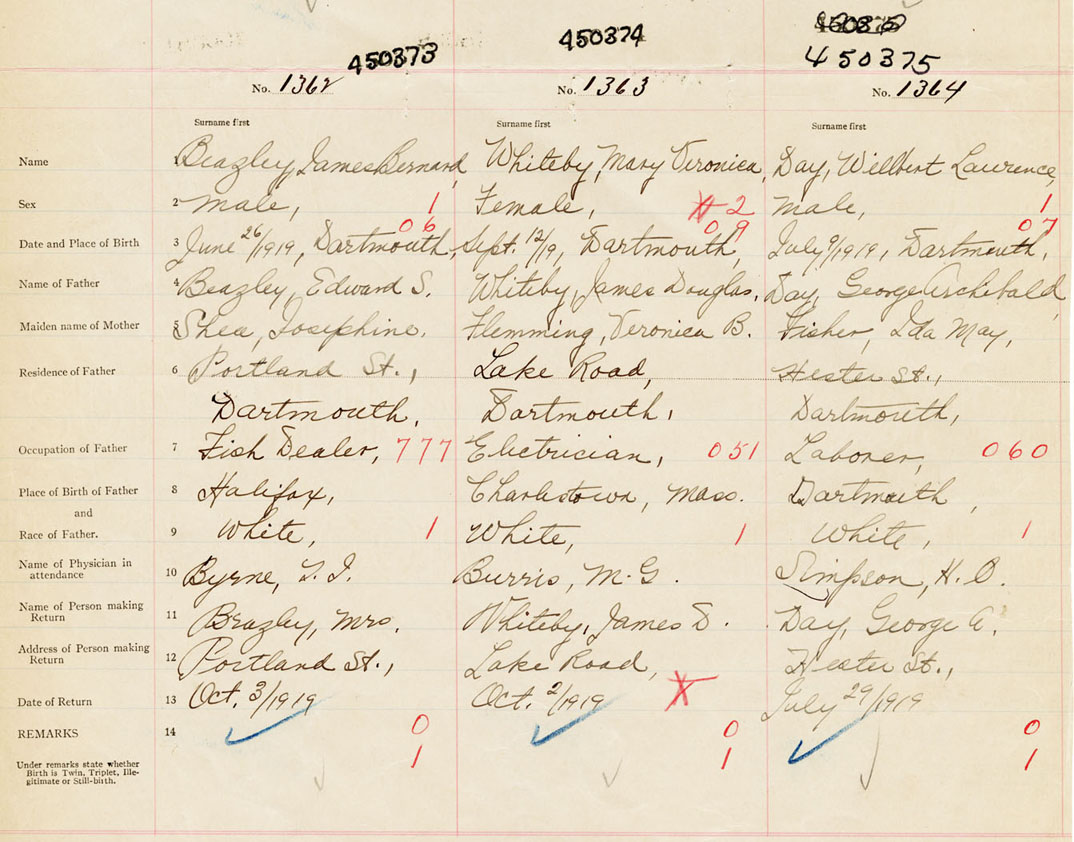 450373 450374 450375
No. 1362 No. 1363 No. 1364
Surname first Surname first Surname first
Name 1 Beazley, James Bernard, Whiteby, Mary Veronica, Day, Wilbert Laurence,
Sex 2 Male, 1 Female, 2 Male, 1
06 09 07
Date and Place of Birth 3 June 26/1919, Dartmouth, Sept. 12/19, Dartmouth, July 9/1919, Dartmouth,
Name of Father 4 Beazley, Edward S. Whiteby, James Douglas, Day, George Archibald,
Maiden name of Mother 5 Shea, Josephine, Flemming, Veronica B. Fisher, Ida May,
Residence of Father 6 Portland St., Lake Road, Hester St.,
Dartmouth, Dartmouth, Dartmouth,
Occupation of Father 7 Fish Dealer, 777 Electrician, 051 Laborer, 060
Place of Birth of Father 8 Halifax, Charlestown, Mass. Dartmouth,
and
Race of Father. 9 White, 1 White, 1 White, 1
Name of Physician in
attendance 10 Byrne, Burris, M.G. Simpson, H.
Name of Person making
Return 11 Beazley, Mrs. Whiteby, James D. Day, George A.
Address of Person making
Return 12 Portland St., Lake Road, Hester St.,
Date of Return 13 Oct. 3/1919 Oct. 2/1919 X July 29/1919
REMARKS 14 0 0 0
1 1 1
Under remarks state whether
Birth is Twin, Triplet, Ille-
gitimate or Still-birth.